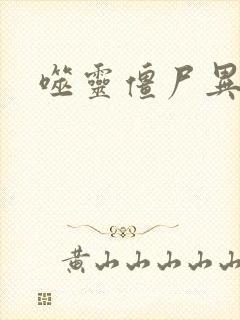 噬靈僵尸異
黄山山山山山